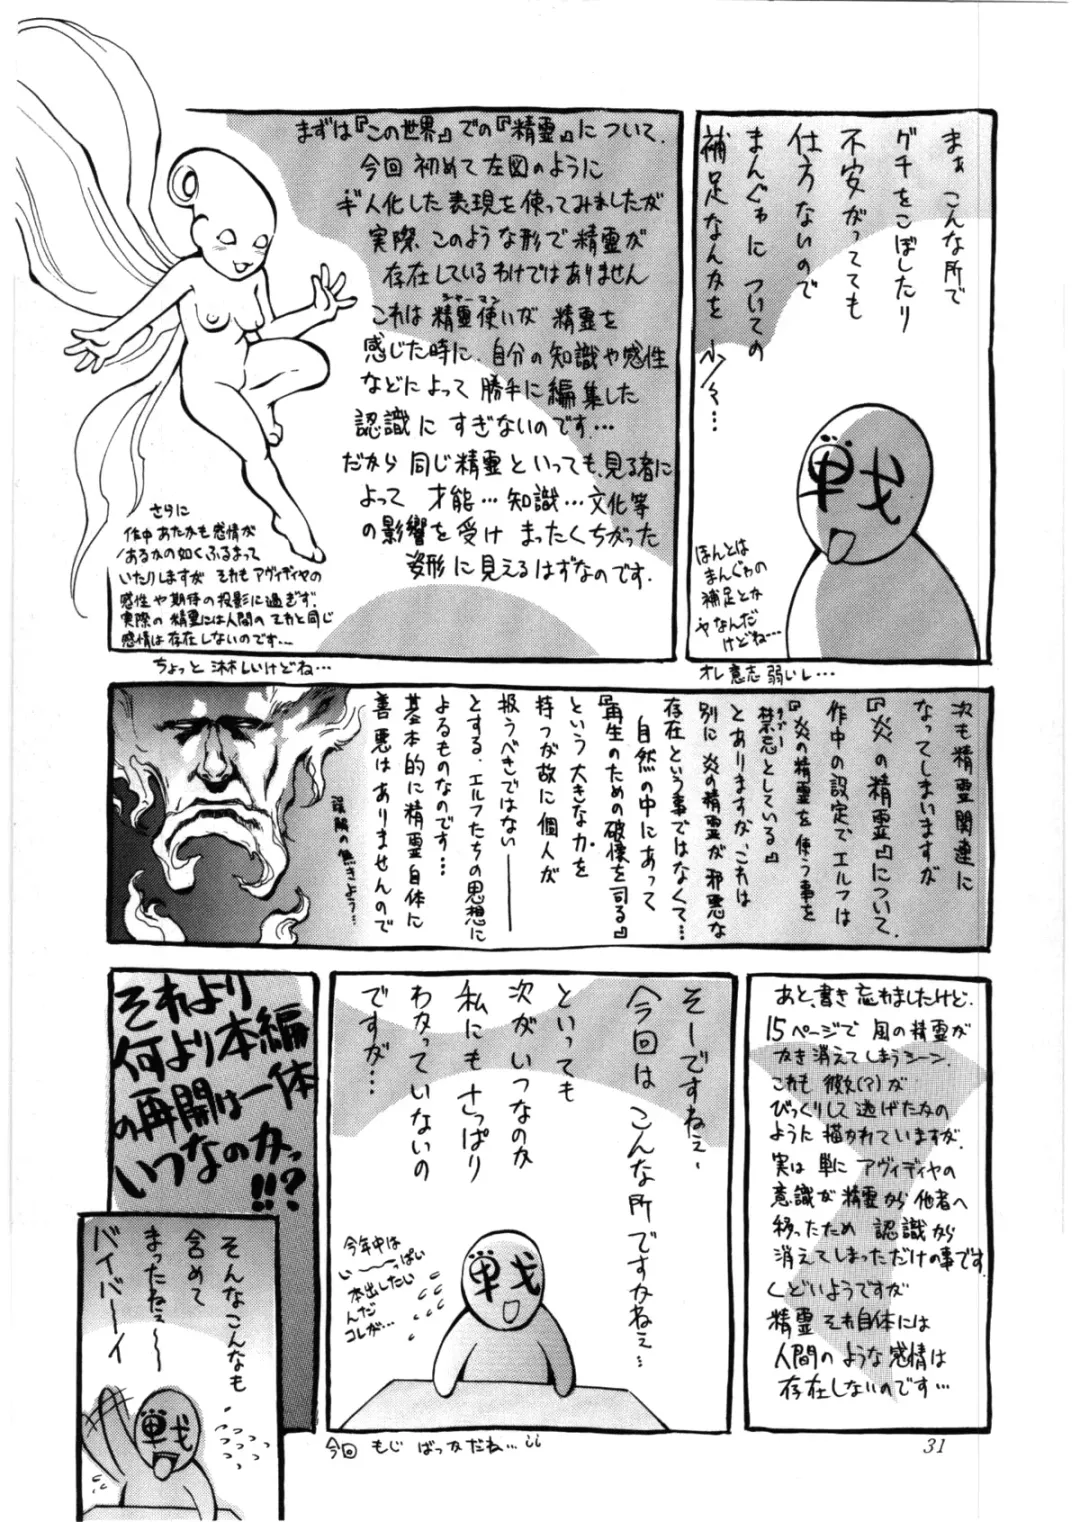 まぁ こんな所で
グチをこぼしたり
不安がってても
仕方ないので
まんがについての
補足なんかを 少々…
戦
ほんとは
まんがの
補足とか
ヤなんだ
けどね…
オレ意志弱いし…
まずは『この世界』での『精霊』について。
今回初めて左図のように
ギ人化した表現を使ってみましたが
実際、このような形で精霊が
存在しているわけではありません
これは精霊使いが 精霊を
シャーマン
感じた時に、自分の知識や感性
などによって勝手に編集した
認識にすぎないのです…
だから同じ精霊といっても、見る者に
よって 才能…知識…文化等
の影響を受け まったくちがった
姿形に見えるはずなのです。
さらに
作中あたかも感情が
あるかの如くふるまって
いたりしますが それもアヴィディヤの
感性や期待の投影に過ぎず、
実際の精霊には人間のそれと同じ
感情は存在しないのです…
ちょっと淋しいけどね…
次も精霊関連に
なってしまいますが
『炎の精霊』について。
作中の設定でエルフは
『炎の精霊を使う事を
禁忌としている』
タブー
とありますが、これは
別に炎の精霊が邪悪な
存在という事ではなくて…
自然の中にあって
『再生のための破壊を司る』
という大きな力を
持つが故に個人が
扱うべきではない――
とする、エルフたちの思想に
よるものなのです…
基本的に精霊自体に
善悪はありませんので
誤解の無きよう…
あと、書き忘れましたけど、
15ページで風の精霊が
かき消えてしまうシーン、
これも彼女(?)が
びっくりして逃げたかの
ように描かれていますが、
実は単にアヴィディヤの
意識が精霊から他者へ
移ったため認識から
消えてしまっただけの事です。
くどいようですが
精霊それ自体には
人間のような感情は
存在しないのです…
そーですねぇ、
今回はこんな所ですかねぇ…
といっても
次がいつなのか
私にもさっぱり
わかっていないの
ですが…
今年中は
い〜〜っぱい
本出したい
んだ
コレが…
戦
今回 もじ ばっかだね…
それより
何より本編
の再開は一体
いつなのかっ
!!?
そんなこんなも
含めて
まったねぇ〜〜
バイバーイ
戦
31